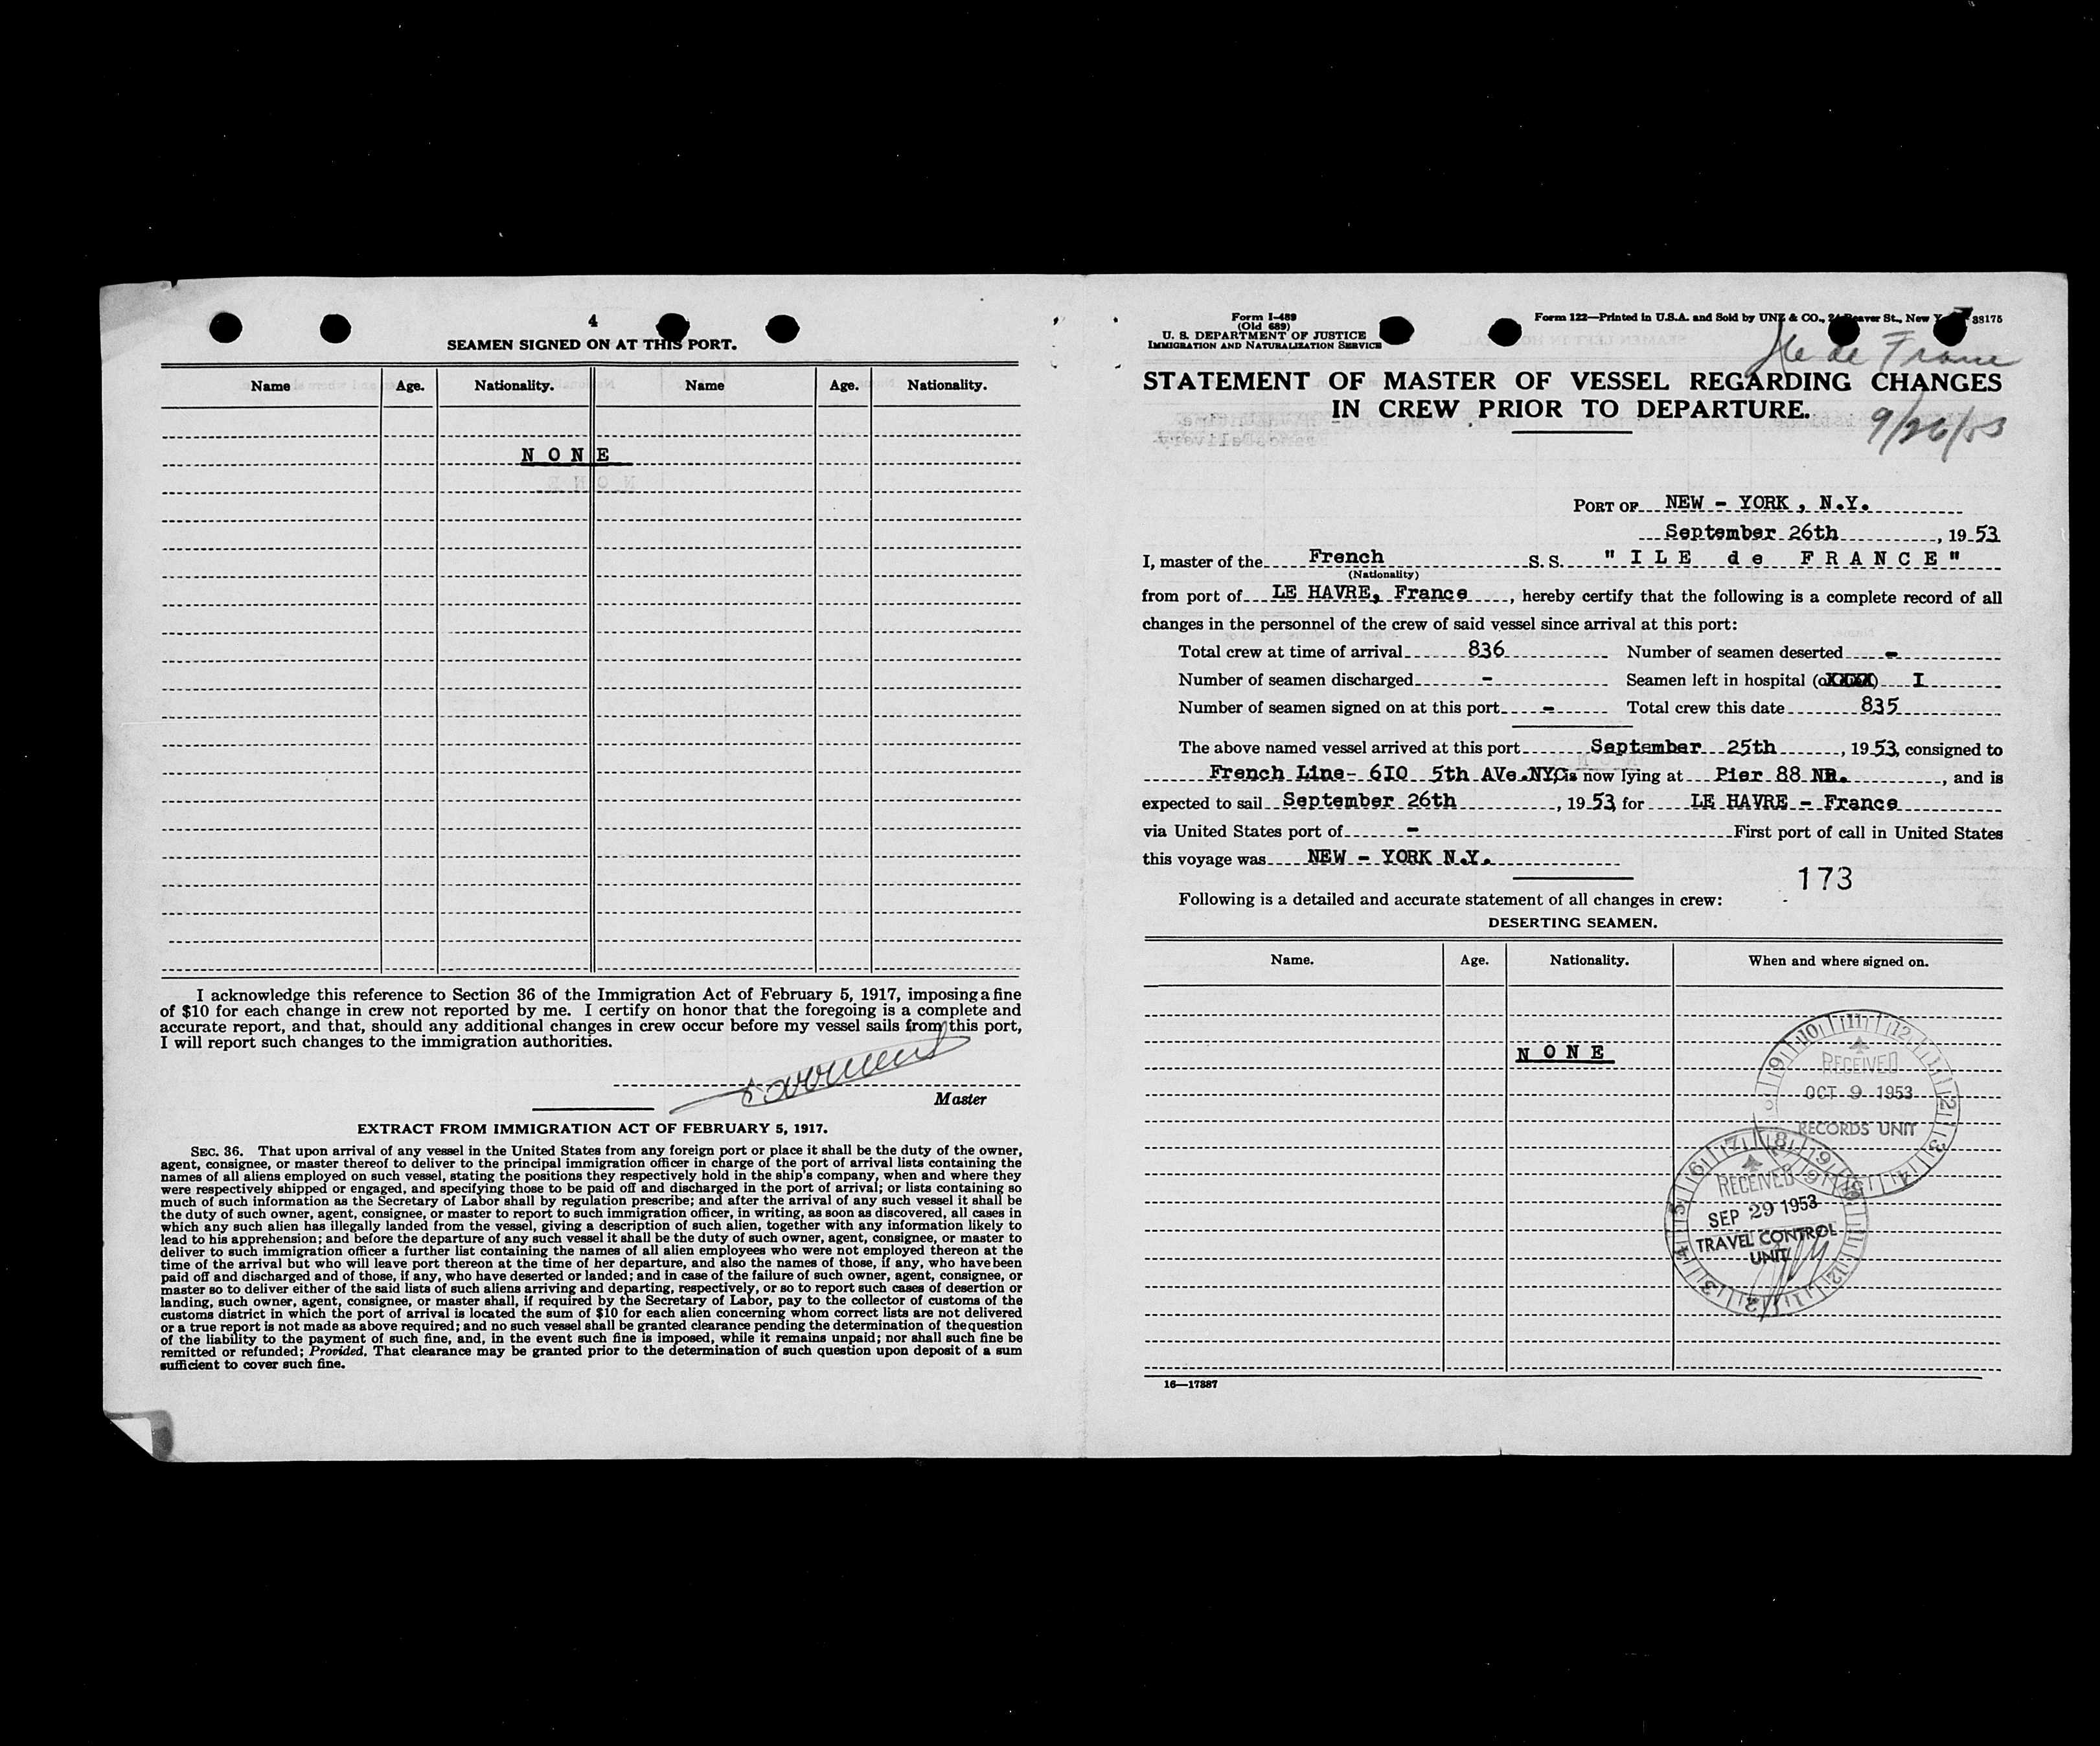 4
SEAMEN SIGNED ON AT THIS PORT.
Name Age. Nationality. Name Age. Nationality.
N O N E
I acknowledge this reference to Section 36 of the Immigration Act of February 5, 1917, imposing a fine
of $10 for each change in crew not reported by me. I certify on honor that the foregoing is a complete and
accurate report, and that, should any additional changes in crew occur before my vessel sails from this port,
I will report such changes to the immigration authorities.
Master
EXTRACT FROM IMMIGRATION ACT OF FEBRUARY 5, 1917.
SEC. 36. That upon arrival of any vessel in the United States from any foreign port or place it shall be the duty of the owner,
agent, consignee, or master thereof to deliver to the principal immigration officer in charge of the port of arrival lists containing the
names of all aliens employed on such vessel, stating the positions they respectively hold in the ship's company, when and where they
were respectively shipped or engaged, and specifying those to be paid off and discharged in the port of arrival; or lists containing so
much of such information as the Secretary of Labor shall by regulation prescribe; and after the arrival of any such vessel it shall be
the duty of such owner, agent, consignee, or master to report to such immigration officer, in writing, as soon as discovered, all cases in
which any such alien has illegally landed from the vessel, giving a description of such alien, together with any information likely to
lead to his apprehension; and before the departure of any such vessel it shall be the duty of such owner, agent, consignee, or master to
deliver to such immigration officer a further list containing the names of all alien employees who were not employed thereon at the
time of the arrival but who will leave port thereon at the time of her departure, and also the names of those, if any, who have been
paid off and discharged and of those, if any, who have deserted or landed; and in case of the failure of such owner, agent, consignee, or
master so to deliver either of the said lists of such aliens arriving and departing, respectively, or so to report such cases of desertion or
landing, such owner, agent, consignee, or master shall, if required by the Secretary of Labor, pay to the collector of customs of the
customs district in which the port of arrival is located the sum of $10 for each alien concerning whom correct lists are not delivered
or a true report is not made as above required; and no such vessel shall be granted clearance pending the determination of the question
of the liability to the payment of such fine, and, in the event such fine is imposed, while it remains unpaid; nor shall such fine be
remitted or refunded; Provided, That clearance may be granted prior to the determination of such question upon deposit of a sum
sufficient to cover such fine.
Form I-489
(Old 689)
U. S. DEPARTMENT OF JUSTICE
IMMIGRATION AND NATURALIZATION SERVICE
Form 122—Printed in U.S.A. and Sold by UNZ & CO., 24 Beaver St., New 38175
Ile de France
STATEMENT OF MASTER OF VESSEL REGARDING CHANGES
IN CREW PRIOR TO DEPARTURE.
9/26/53
PORT OF NEW - YORK , N.Y.
September 26th , 19 53
I, master of the French S. S. " I L E d e F R A N C E "
(Nationality)
from port of LE HAVRE, France , hereby certify that the following is a complete record of all
changes in the personnel of the crew of said vessel since arrival at this port:
Total crew at time of arrival 836 Number of seamen deserted -
Number of seamen discharged - Seamen left in hospital (oXXXX) I
Number of seamen signed on at this port - Total crew this date 835
The above named vessel arrived at this port September 25th , 19 53, consigned to
French Line- 6I0 5th AVe.NYC is now lying at Pier 88 NR. , and is
expected to sail September 26th , 19 53 for LE HAVRE - France
via United States port of - First port of call in United States
this voyage was NEW - YORK N.Y.
173
Following is a detailed and accurate statement of all changes in crew:
DESERTING SEAMEN.
Name. Age. Nationality. When and where signed on.
N O N E
RECEIVED
OCT 9 1953
RECORDS UNIT
RECEIVED
SEP 29 1953
TRAVEL CONTROL
UNIT
16—17887